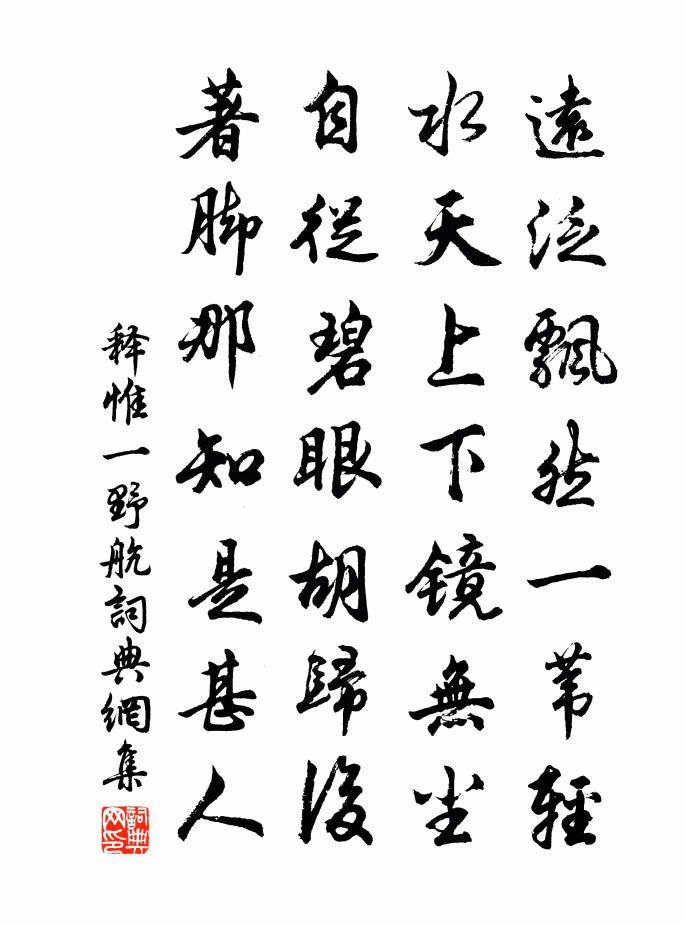 遠泛飄然一苇輕
水天上下镜無尘
自從碧眼胡歸後
著脚那知是甚人
释惟一野航詞典網集
詞典网印